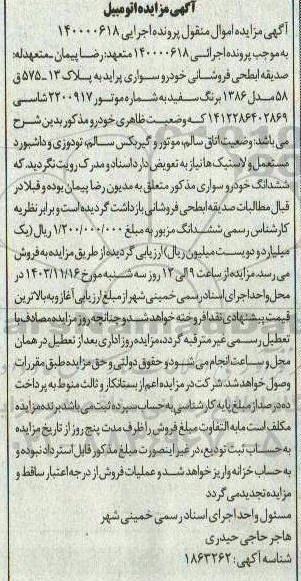 آگهی مزایده اتومبیل
آگهی مزایده اموال منقول پرونده اجرایی ۱۴۰۰۰۰۶۱۸
به موجب پرونده اجرائی ۱۴۰۰۰۰۶۱۸ متعهد: رضا پیمان _متعهدله:
صدیقه ابطحی فروشانی خودرو سواری پراید به پلاک ۱۳-۵۷۵ ق
۵۸ مدل ۱۳۸۶ برنگ سفید به شماره موتور ۲۲۰۰۹۱۷ شاسی
۱۴۱۲۲۸۶۴۰۲۸۶۹ که وضعیت ظاهری خودرو مذکور بدین شرح
می باشد: وضعیت اتاق سالم، موتور و گیربکس سالم، تودوزی و داشبورد
مستعمل و لاستیک ها نیاز به تعویض دارد اسناد و مدرک رویت نگردید. که
ششدانگ خودرو سواری مذکور متعلق به مدیون رضا پیمان بوده و قبلا در
قبال مطالبات صدیقه ابطحی فروشانی بازداشت گردیده است و برابر نظریه
کارشناس رسمی ششدانگ مزبور به مبلغ ۱/۲۰۰/۰۰۰/۰۰۰ ریال (یک
میلیارد و دویست میلیون ریال) ارزیابی گردیده از طریق مزایده به فروش
می رسد. مزایده از ساعت ۹ الی ۱۲ روز سه شنبه مورخ ۱۴۰۳/۱۱/۱۶ در
محل واحد اجرای اسناد رسمی خمینی شهر از مبلغ ارزیابی آغاز و به بالاترین
قیمت پیشنهادی نقدا فروخته خواهد شد و چنانچه روز مزایده مصادف با
تعطیل رسمی غیر مترقبه گردد، مزایده روز اداری بعد از تعطیل در همان
محل و ساعت انجام می شود و حقوق دولتی و حق مزایده طبق مقررات
وصول خواهد شد: شرکت در مزایده اعم از بستانکار و ثالث منوط به پرداخت
ده درصد از مبلغ پایه کارشناسی به حساب سپرده ثبت می باشد برنده مزایده
مکلف است مابه التفاوت مبلغ فروش را ظرف مدت پنج روز از تاریخ مزایده
به حساب ثبت تودیع، در غیر اینصورت مبلغ مذکور قابل استرداد نبوده و
به حساب خزانه واریز خواهد شد و عملیات فروش از درجه اعتبار ساقط و
مزایده تجدید می گردد
مسئول واحد اجرای اسناد رسمی خمینی شهر
هاجر حاجی حیدری
شناسه آگهی: ۱۸۶۳۲۶۲